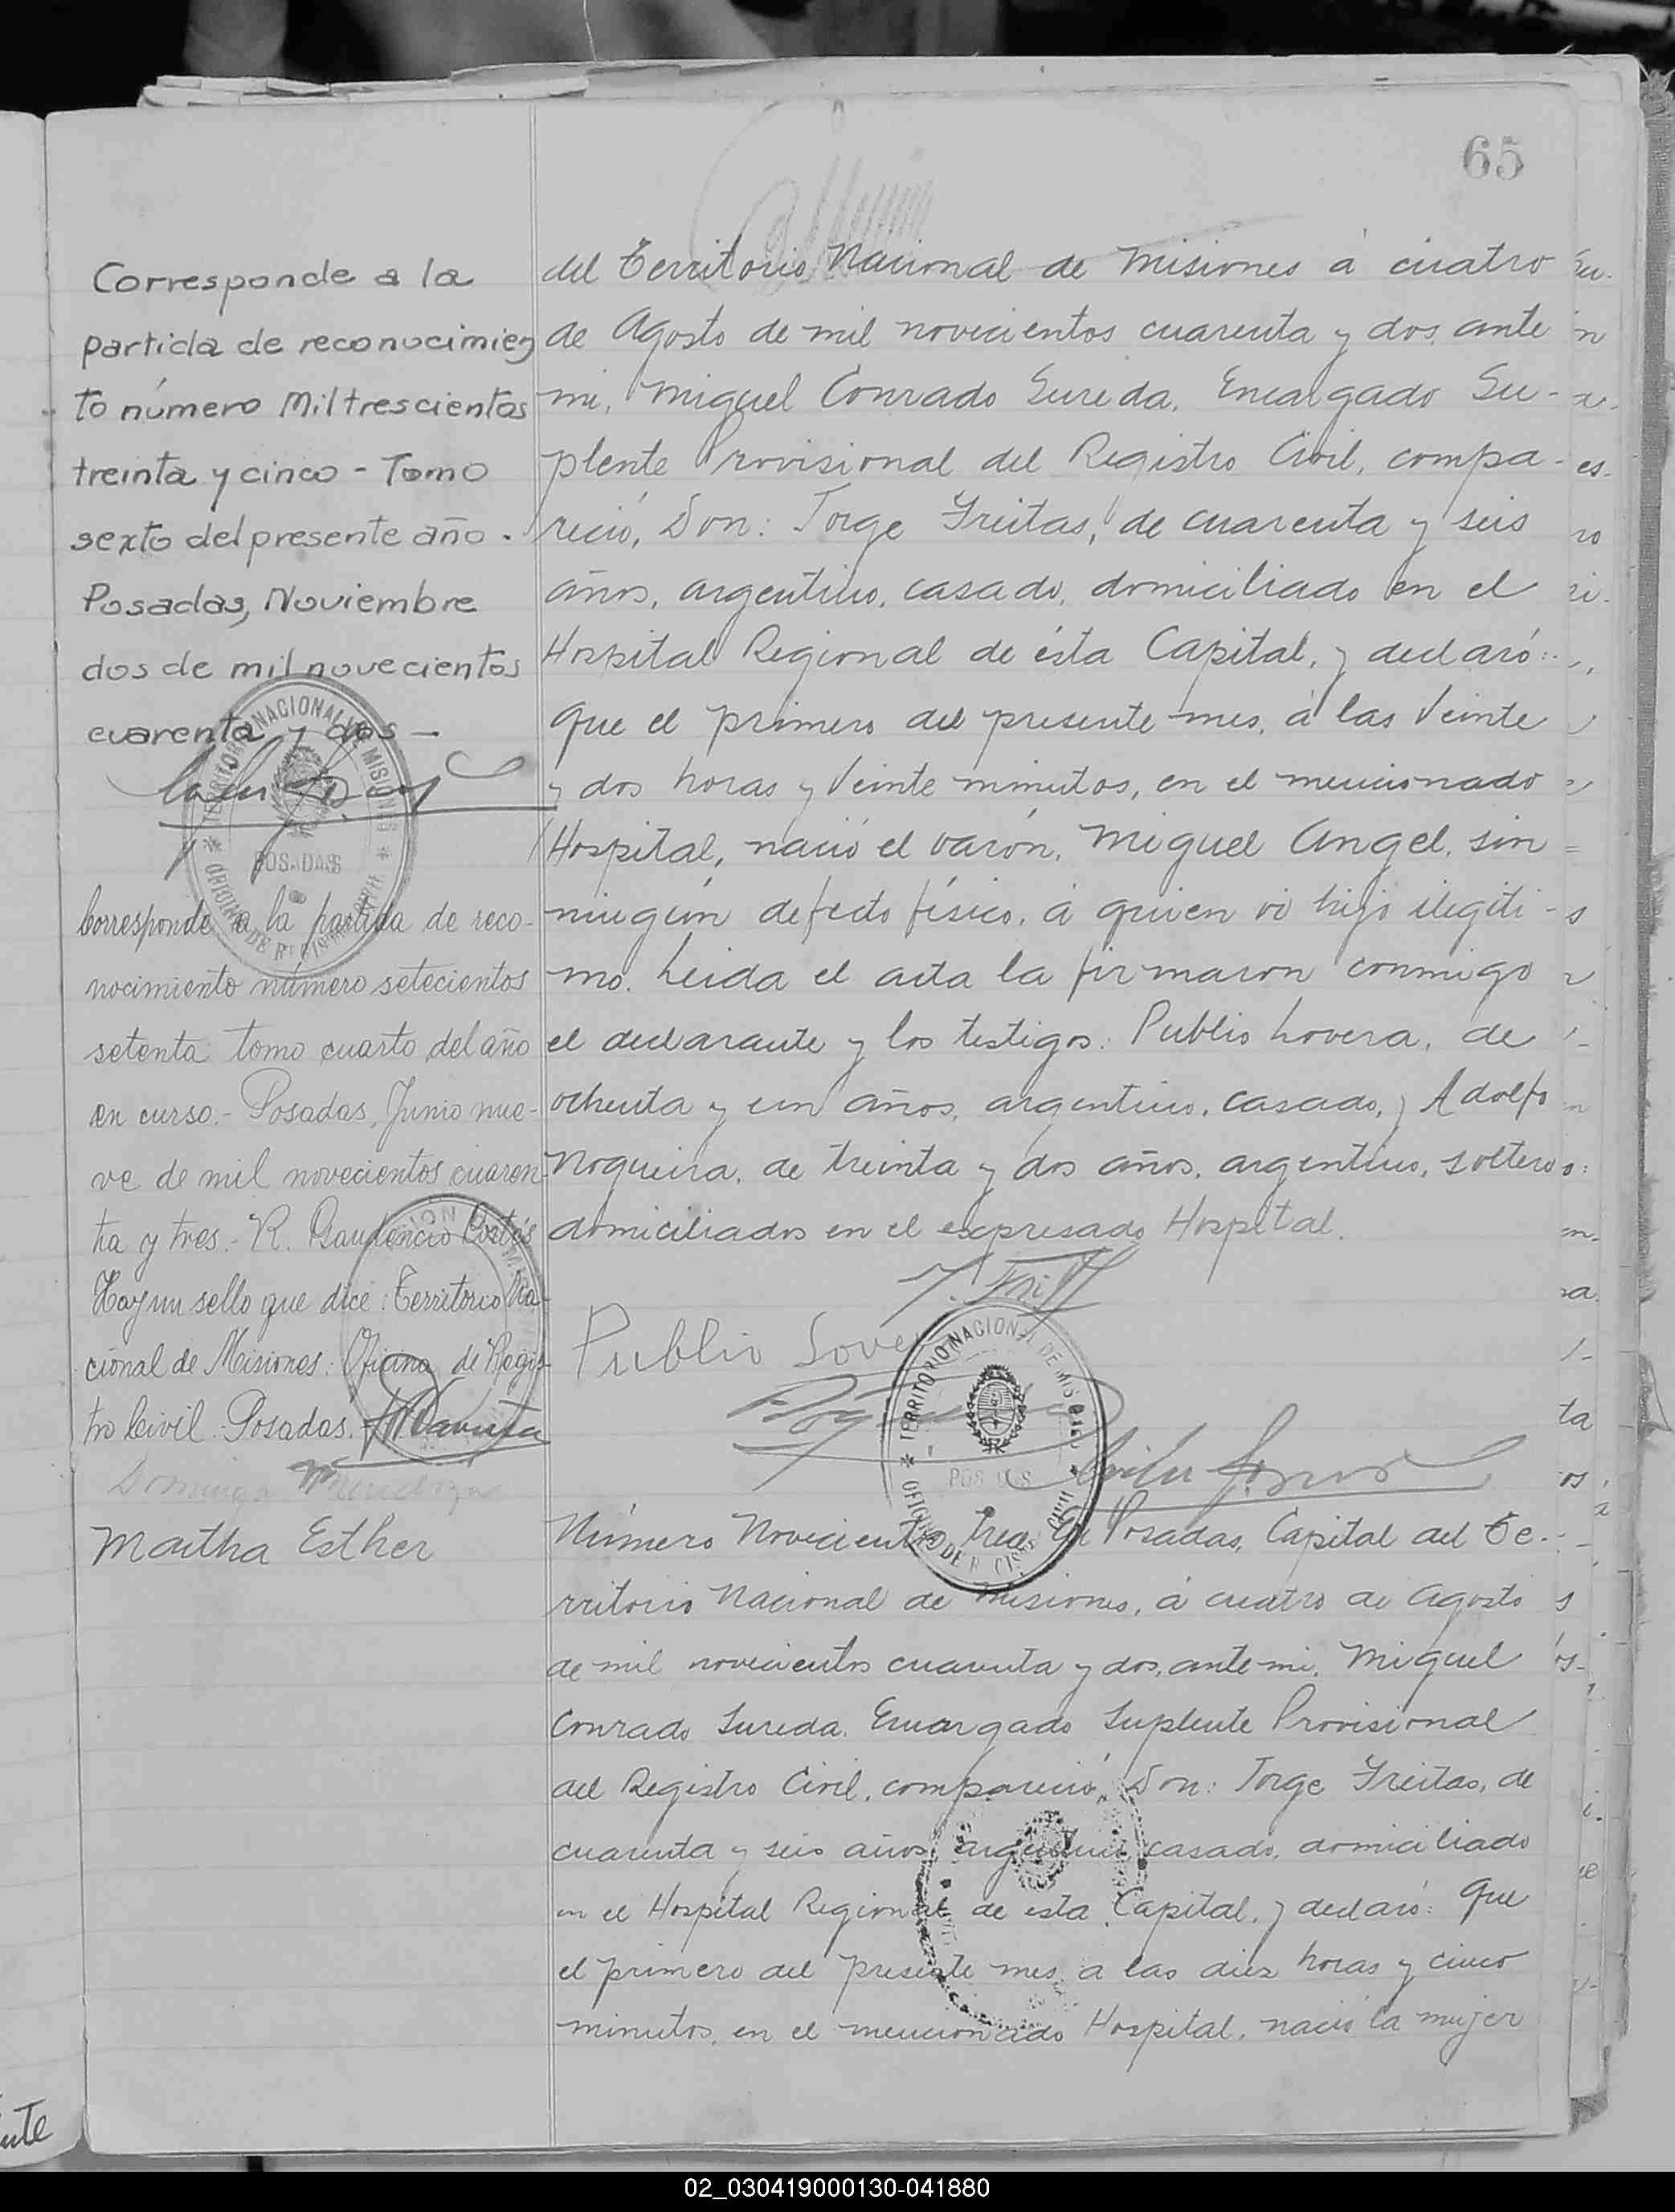 65
Corresponde a la
partida de reconocimien
to número Mil trescientos
treinta y cinco - Tomo
sexto del presente año.
Posadas, Noviembre
dos de mil novecientos
cuarenta y dos -
TERRITORIO NACIONAL DE MISIONES
OFICINA DE REGISTRO CIVIL
POSADAS
Corresponde a la partida de reco-
nocimiento número setecientos
setenta tomo cuarto del año
en curso.- Posadas, Junio nue-
ve de mil novecientos cuaren-
ta y tres.- R. Gaudencio Cortés
Hay un sello que dice: Territorio Na-
cional de Misiones: Oficina de Regis-
tro Civil. Posadas.
Dominga Mendoza
Martha Esther
del Territorio Nacional de Misiones á cuatro
de Agosto de mil novecientos cuarenta y dos, ante
mi, Miguel Conrado Sureda, Encargado Su-
plente Provisional del Registro Civil, compa-
reció, Don: Jorge Freitas, de cuarenta y seis
años, argentino, casado, domiciliado en el
Hospital Regional de ésta Capital, y declaró:
Que el primero del presente mes, á las Veinte
y dos horas y Veinte minutos, en el mencionado
Hospital, nació el varón, Miguel Angel, sin
ningún defecto físico, á quien vi hijo ilegiti-
mo. Leida el acta la firmaron conmigo
el declarante y los testigos: Publio Lovera, de
ochenta y un años, argentino, casado, y Adolfo
Nogueira, de treinta y dos años, argentino, soltero
domiciliados en el expresado Hospital.
Publio Lovera
TERRITORIO NACIONAL DE MISIONES
OFICINA DE REGISTRO CIVIL
POSADAS
Número Novecientos trece En Posadas, Capital del Te-
rritorio Nacional de Misiones, á cuatro de Agosto
de mil novecientos cuarenta y dos, ante mi, Miguel
Conrado Sureda, Encargado Suplente Provisional
del Registro Civil, compareció, Don: Jorge Freitas, de
cuarenta y seis años, argentino, casado, domiciliado
en el Hospital Regional de esta Capital, y declaró: Que
el primero del presente mes, a las diez horas y cinco
minutos, en el mencionado Hospital, nació la mujer
02_030419000130-041880